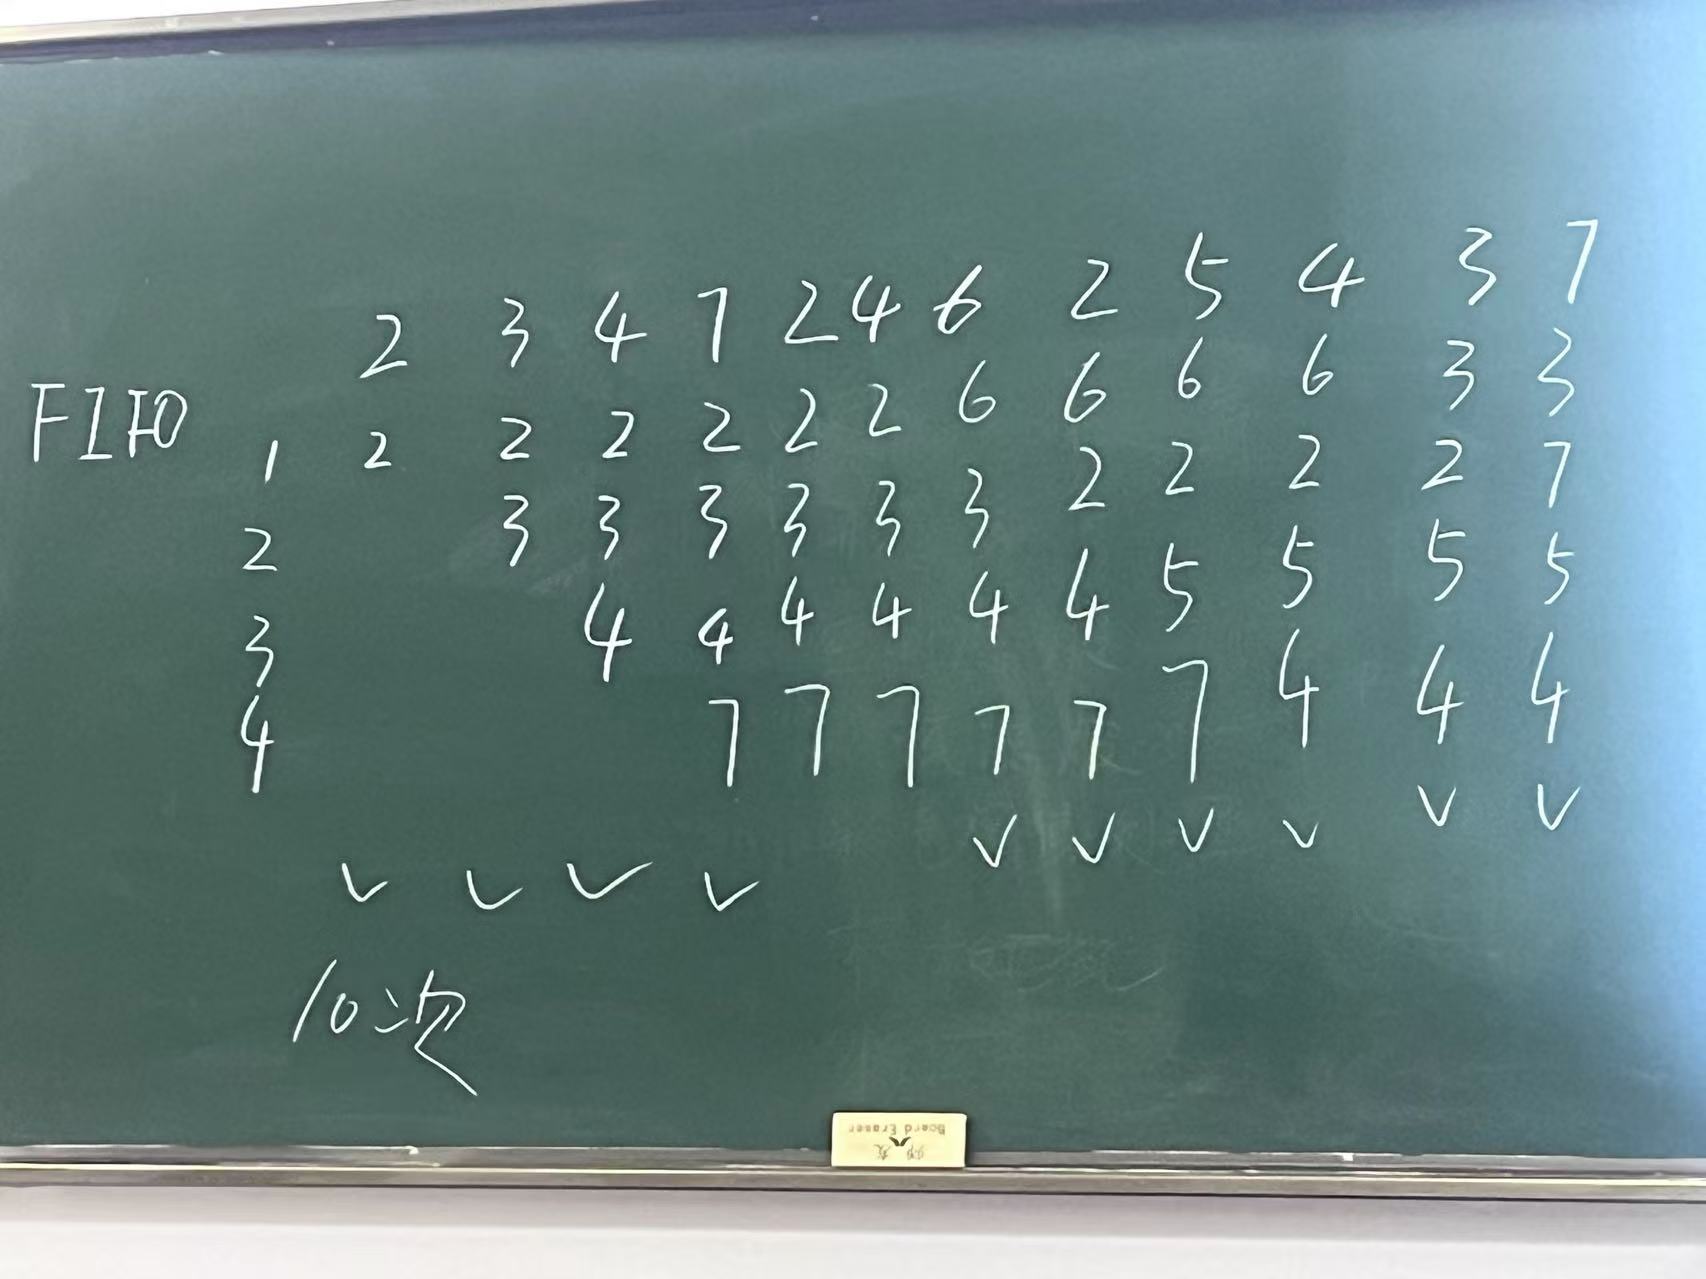 2 3 4 7 2 4 6 2 5 4 3 7
FIFO 1 2 2 2 2 2 2 6 6 6 6 3 3
2 3 3 3 3 3 3 2 2 2 2 7
3 4 4 4 4 4 4 5 5 5 5
4 7 7 7 7 7 7 4 4 4
✓ ✓ ✓ ✓ ✓ ✓ ✓ ✓ ✓ ✓
10次
Board Eraser